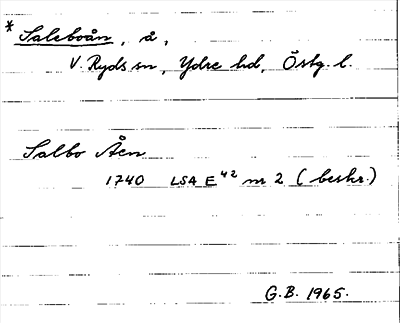 * Saleboån, å,
V. Ryds sn, Ydre hd, Östg. l.
Salbo Åen
1740 LSA E 42 nr 2 (beskr.)
G.B. 1965.